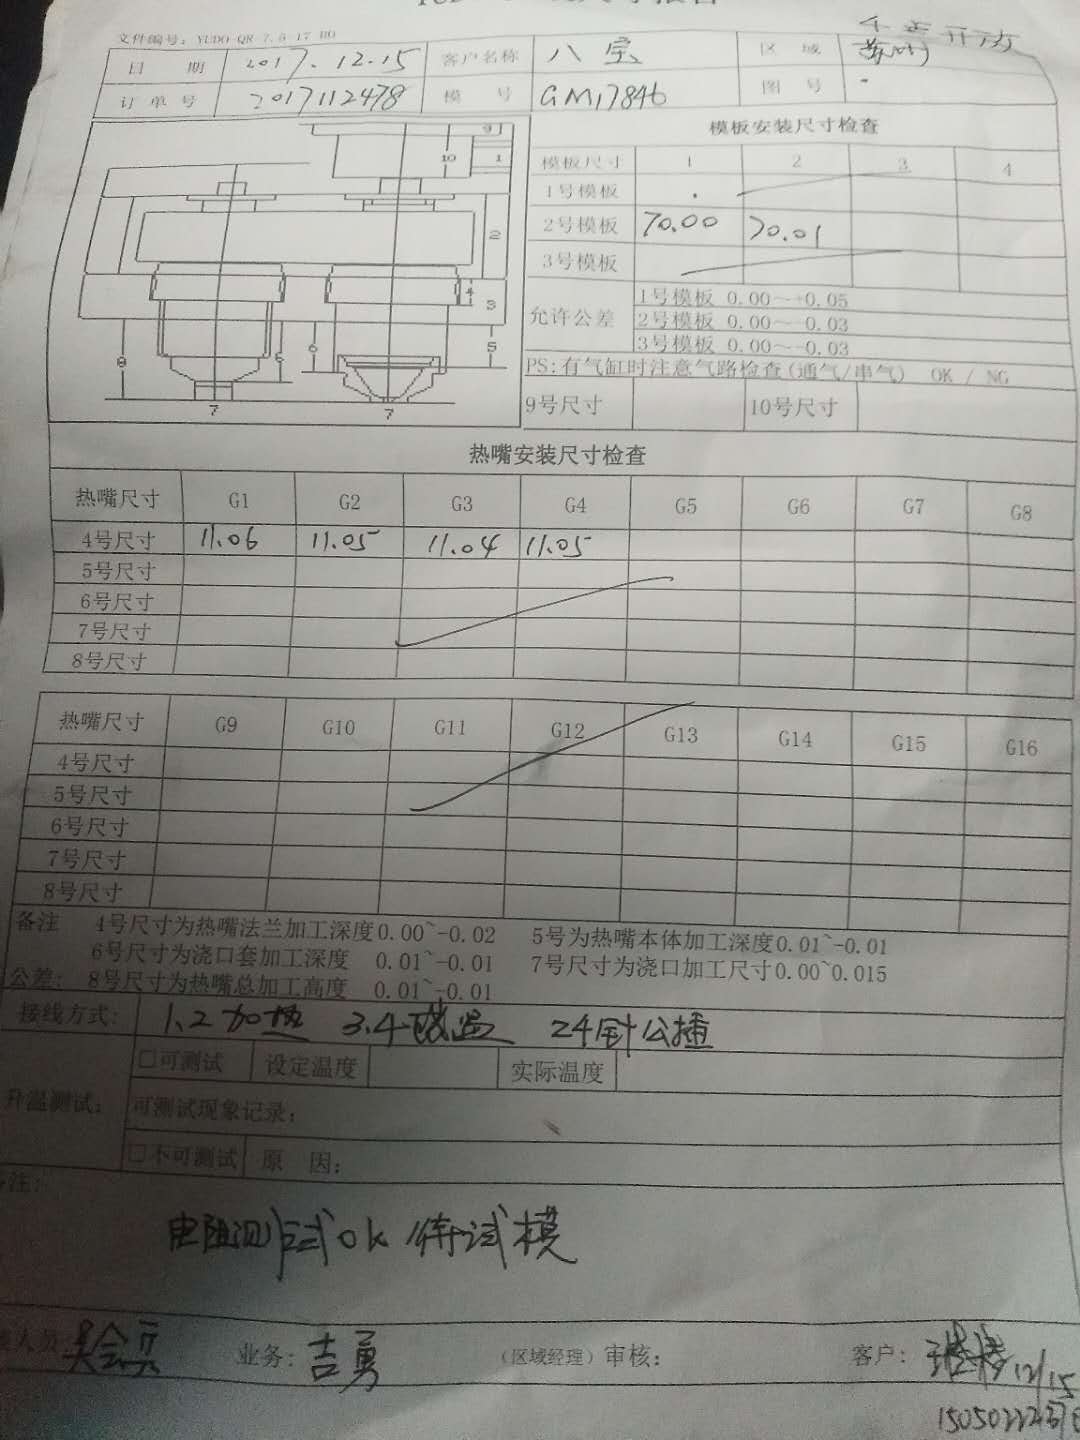 文件编号：YUDO-QR-7.5-17 B0
日 期 2017.12.15 客户名称 八宝 区 域 苏州
订单号 2017112478 模 号 GM17846 图 号
模板安装尺寸检查
模板尺寸 1 2 3 4
1号模板
2号模板 70.00 70.01
3号模板
允许公差 1号模板 0.00~+0.05
2号模板 0.00~-0.03
3号模板 0.00~-0.03
PS:有气缸时注意气路检查(通气/串气) OK / NG
9号尺寸 10号尺寸
9
10 1
2
4
3
8 6 6 5
7 7
热嘴安装尺寸检查
热嘴尺寸 G1 G2 G3 G4 G5 G6 G7 G8
4号尺寸 11.06 11.05 11.04 11.05
5号尺寸
6号尺寸
7号尺寸
8号尺寸
热嘴尺寸 G9 G10 G11 G12 G13 G14 G15 G16
4号尺寸
5号尺寸
6号尺寸
7号尺寸
8号尺寸
备注 4号尺寸为热嘴法兰加工深度0.00~-0.02 5号为热嘴本体加工深度0.01~-0.01
6号尺寸为浇口套加工深度 0.01~-0.01 7号尺寸为浇口加工尺寸0.00~0.015
公差: 8号尺寸为热嘴总加工高度 0.01~-0.01
接线方式: 1.2加热 3.4感温 24针公插
□可测试 设定温度 实际温度
升温测试: 可测试现象记录:
□不可测试 原 因:
备注:
电阻测试ok 待试模
人员 业务: 吉勇 (区域经理)审核: 客户: 12/15